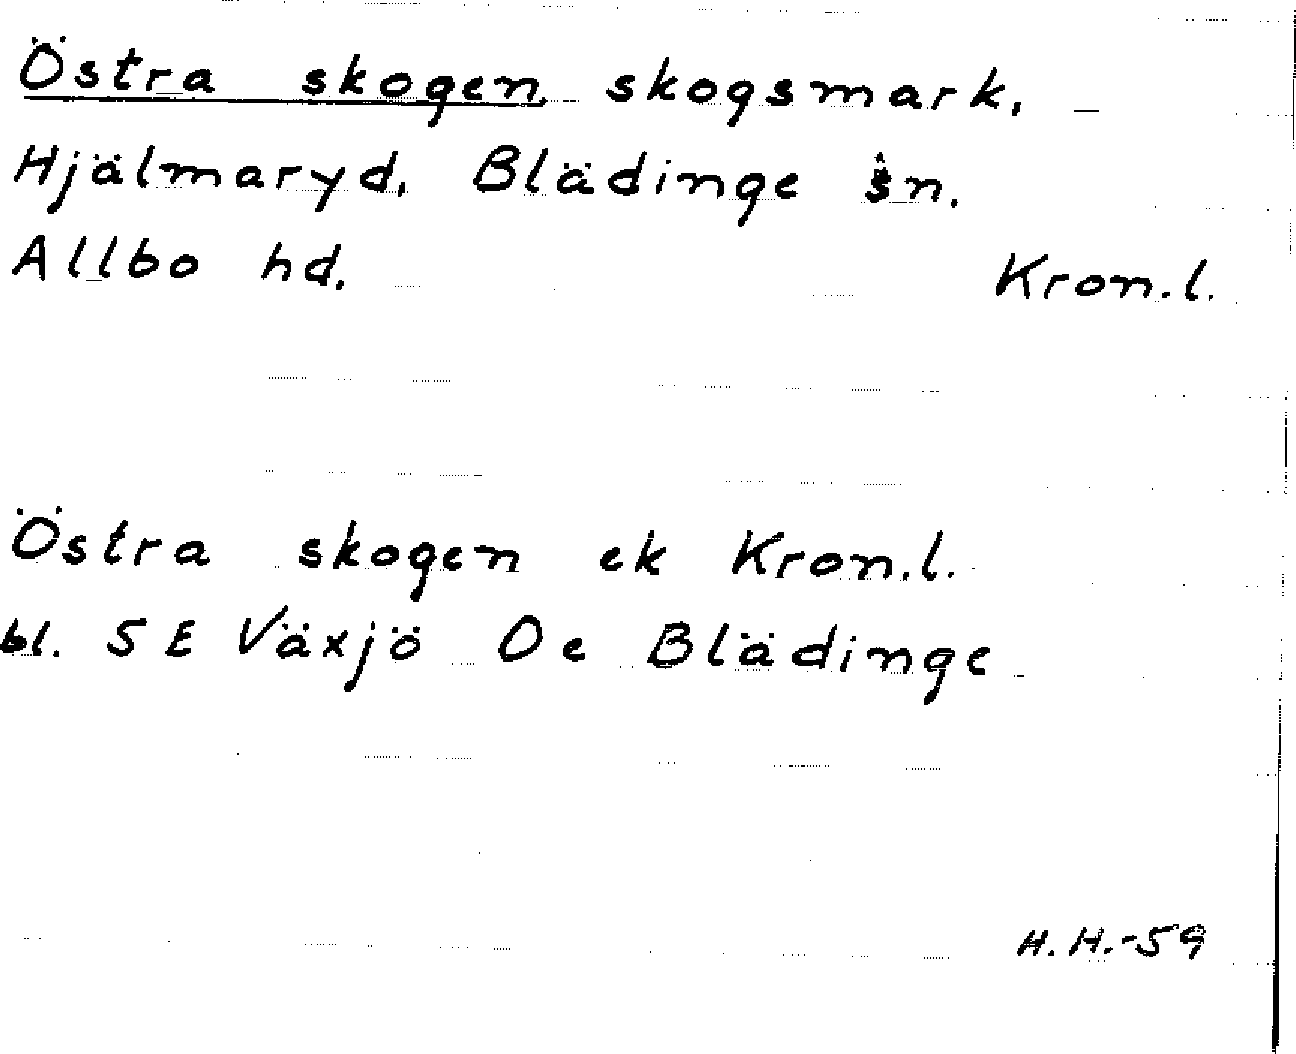 Östra skogen, skogsmark,
Hjälmaryd, Blädinge sn.
Allbo hd. Kron.l.
Östra skogen ek Kron.l.
bl. 5 E Växjö Oe Blädinge
H.H.-59